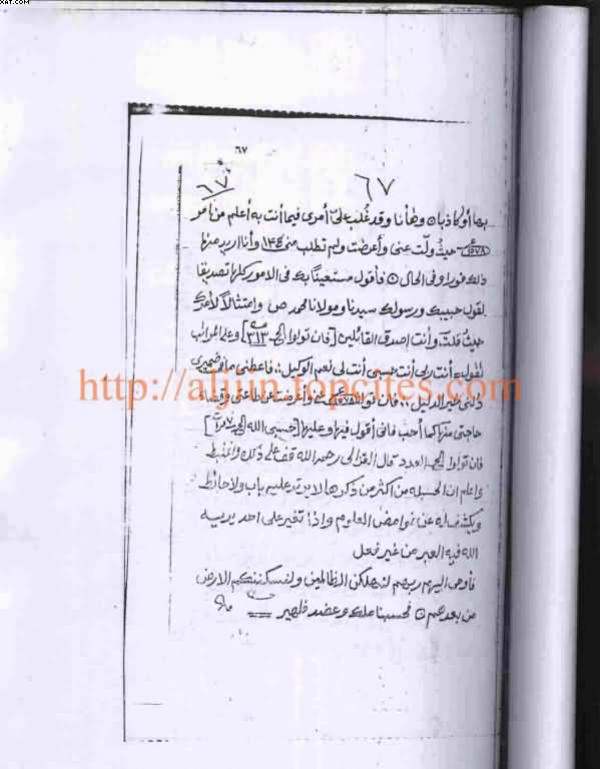 XAT.COM
٦٧
٦٧ ٦٧
بها أولا كاذبا وها أنا وقد غلب على أمرى فيما أنت به أعلم من أمر
حيث ولت عنى وأعرضت ولم تطلب منى وأنا اريد منها
ذلك فورا وفى الحال فأقول مستعينا بك فى الامور كلها تصديقا
لقول حبيبك ورسولك سيدنا ومولانا محمد ص وامتثالا لأمرك
حيث قلت وأنت اصدق القائلين [فان تولوا الخ ٣١٣] وعلى المراتب
أقول أنت ربى أنت حسبى أنت لى نعم الوكيل : فاعطنى ما فى ضميرى
دلنى خير الدليل : فان تولوا
حاجتى منها كما أحب فانى أقول فيها وعليها [حسبى الله الخ
فان تولوا الخ العدد قال الغزالى رحمه الله قف على ذلك
واعلم ان الحسبله من اكثر من ذكرها لا يرتد عليه باب ولا حائط
ويكشف له عن غوامض العلوم واذا تغير على احد يريه
الله فيه العبر من غير فعل
فأوحى اليهم ربهم لنهلكن الظالمين ولنسكننكم الارض
من بعدهم فحسبنا وعضد ظهير
http://aljiin.topcites.com